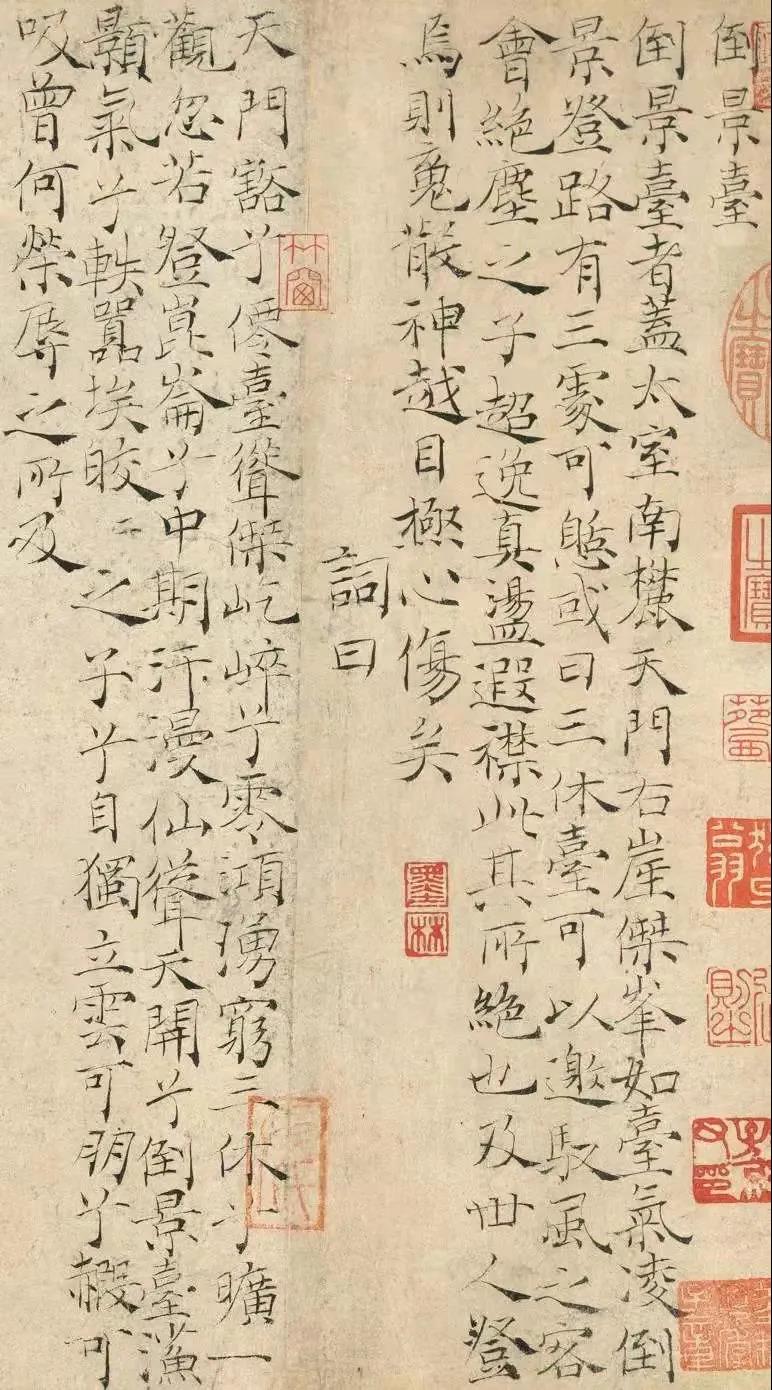 倒景臺
倒景臺者蓋太室南麓天門右崖傑峯如臺氣凌倒
景登路有三處可憇或曰三休臺可以邀馭風之客
會絕塵之子超逸真盪遐襟此其所絕也及世人登
焉則魂散神越目極心傷矣
墨林
詞曰
竹窗
天門豁兮僊臺聳傑屹崒兮零澒湧窮三休兮曠一
觀忽若登崑崙兮中期汗漫仙聳天開兮倒景臺
顥氣兮軼囂埃皎〻之子兮自獨立雲可朋兮可
吸曾何榮辱之所及